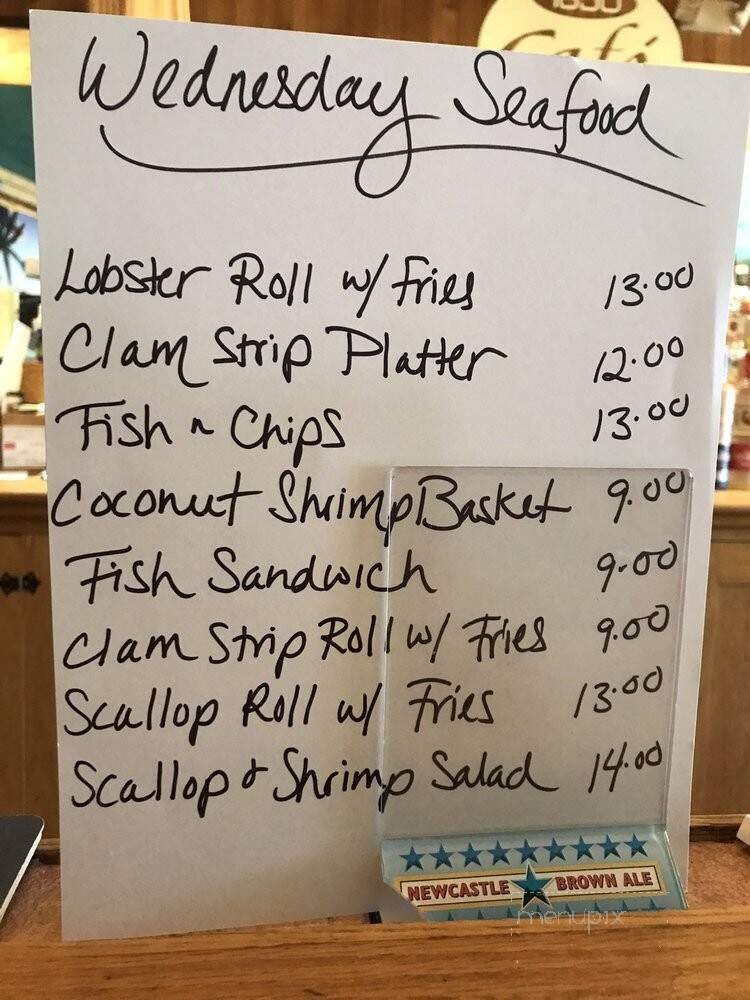 1830
Café
Wednesday Seafood
Lobster Roll w/ Fries 13.00
Clam Strip Platter 12.00
Fish n Chips 13.00
Coconut Shrimp Basket 9.00
Fish Sandwich 9.00
Clam Strip Roll w/ Fries 9.00
Scallop Roll w/ Fries 13.00
Scallop & Shrimp Salad 14.00
NEWCASTLE BROWN ALE
menupix